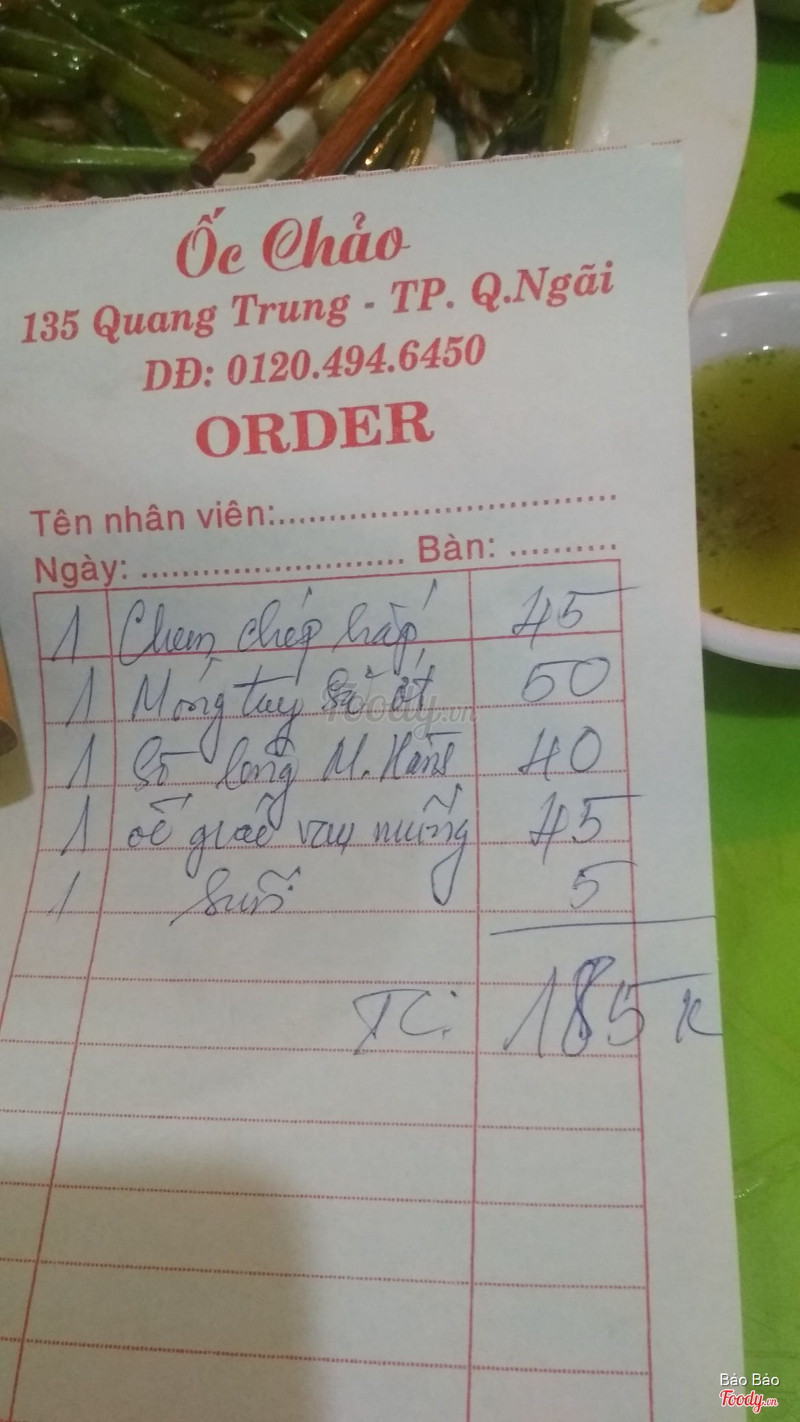 Ốc Chảo
135 Quang Trung - TP. Q.Ngãi
DĐ: 0120.494.6450
ORDER
Tên nhân viên:
Ngày: Bàn:
1 Chem chép hấp 45
1 Móng tay Sa ớt 50
1 Sò lông M. Hành 40
1 ốc giác vam nướng 45
1 5
TC: 185K
Foody.vn
Bảo Bảo
Foody.vn